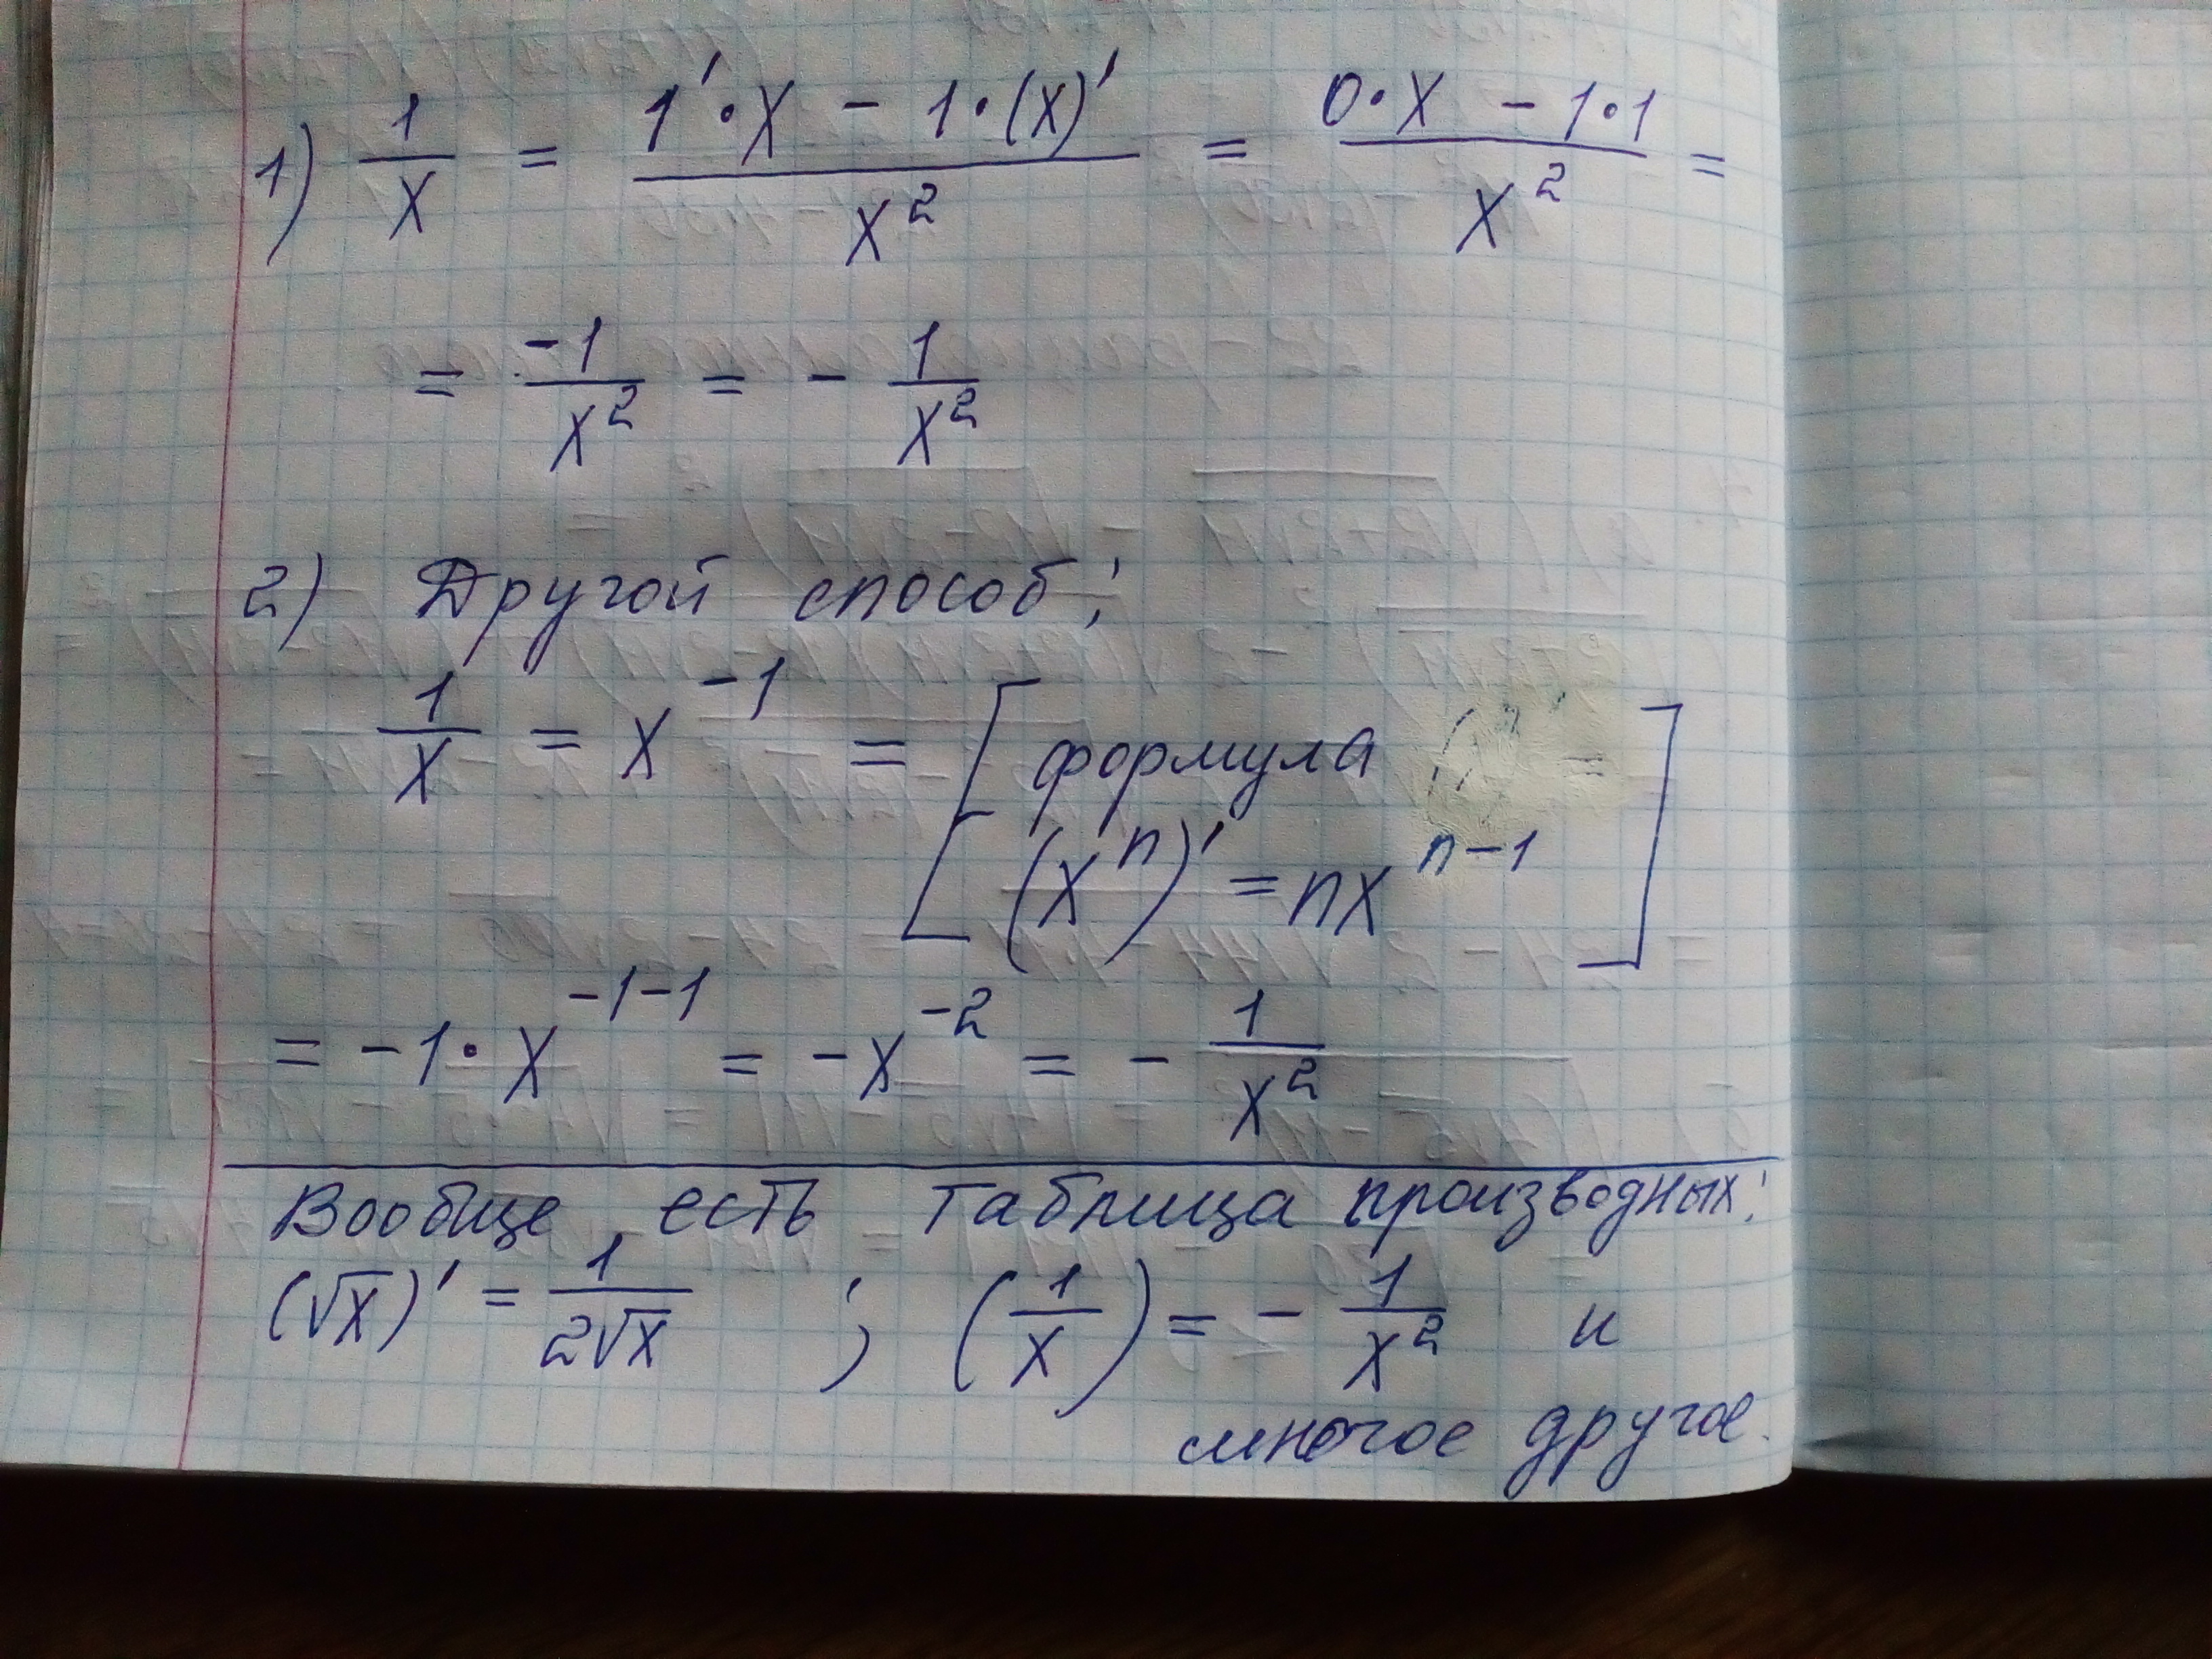 1) 1/x = (1'·x − 1·(x)')/x² = (0·x − 1·1)/x² =
= −1/x² = − 1/x²
2) Другой способ:
1/x = x⁻¹ = [формула
(xⁿ)' = nxⁿ⁻¹]
= −1·x⁻¹⁻¹ = −x⁻² = − 1/x²
Вообще есть таблица производных:
(√x)' = 1/(2√x) ; (1/x) = − 1/x² и
многое другое.